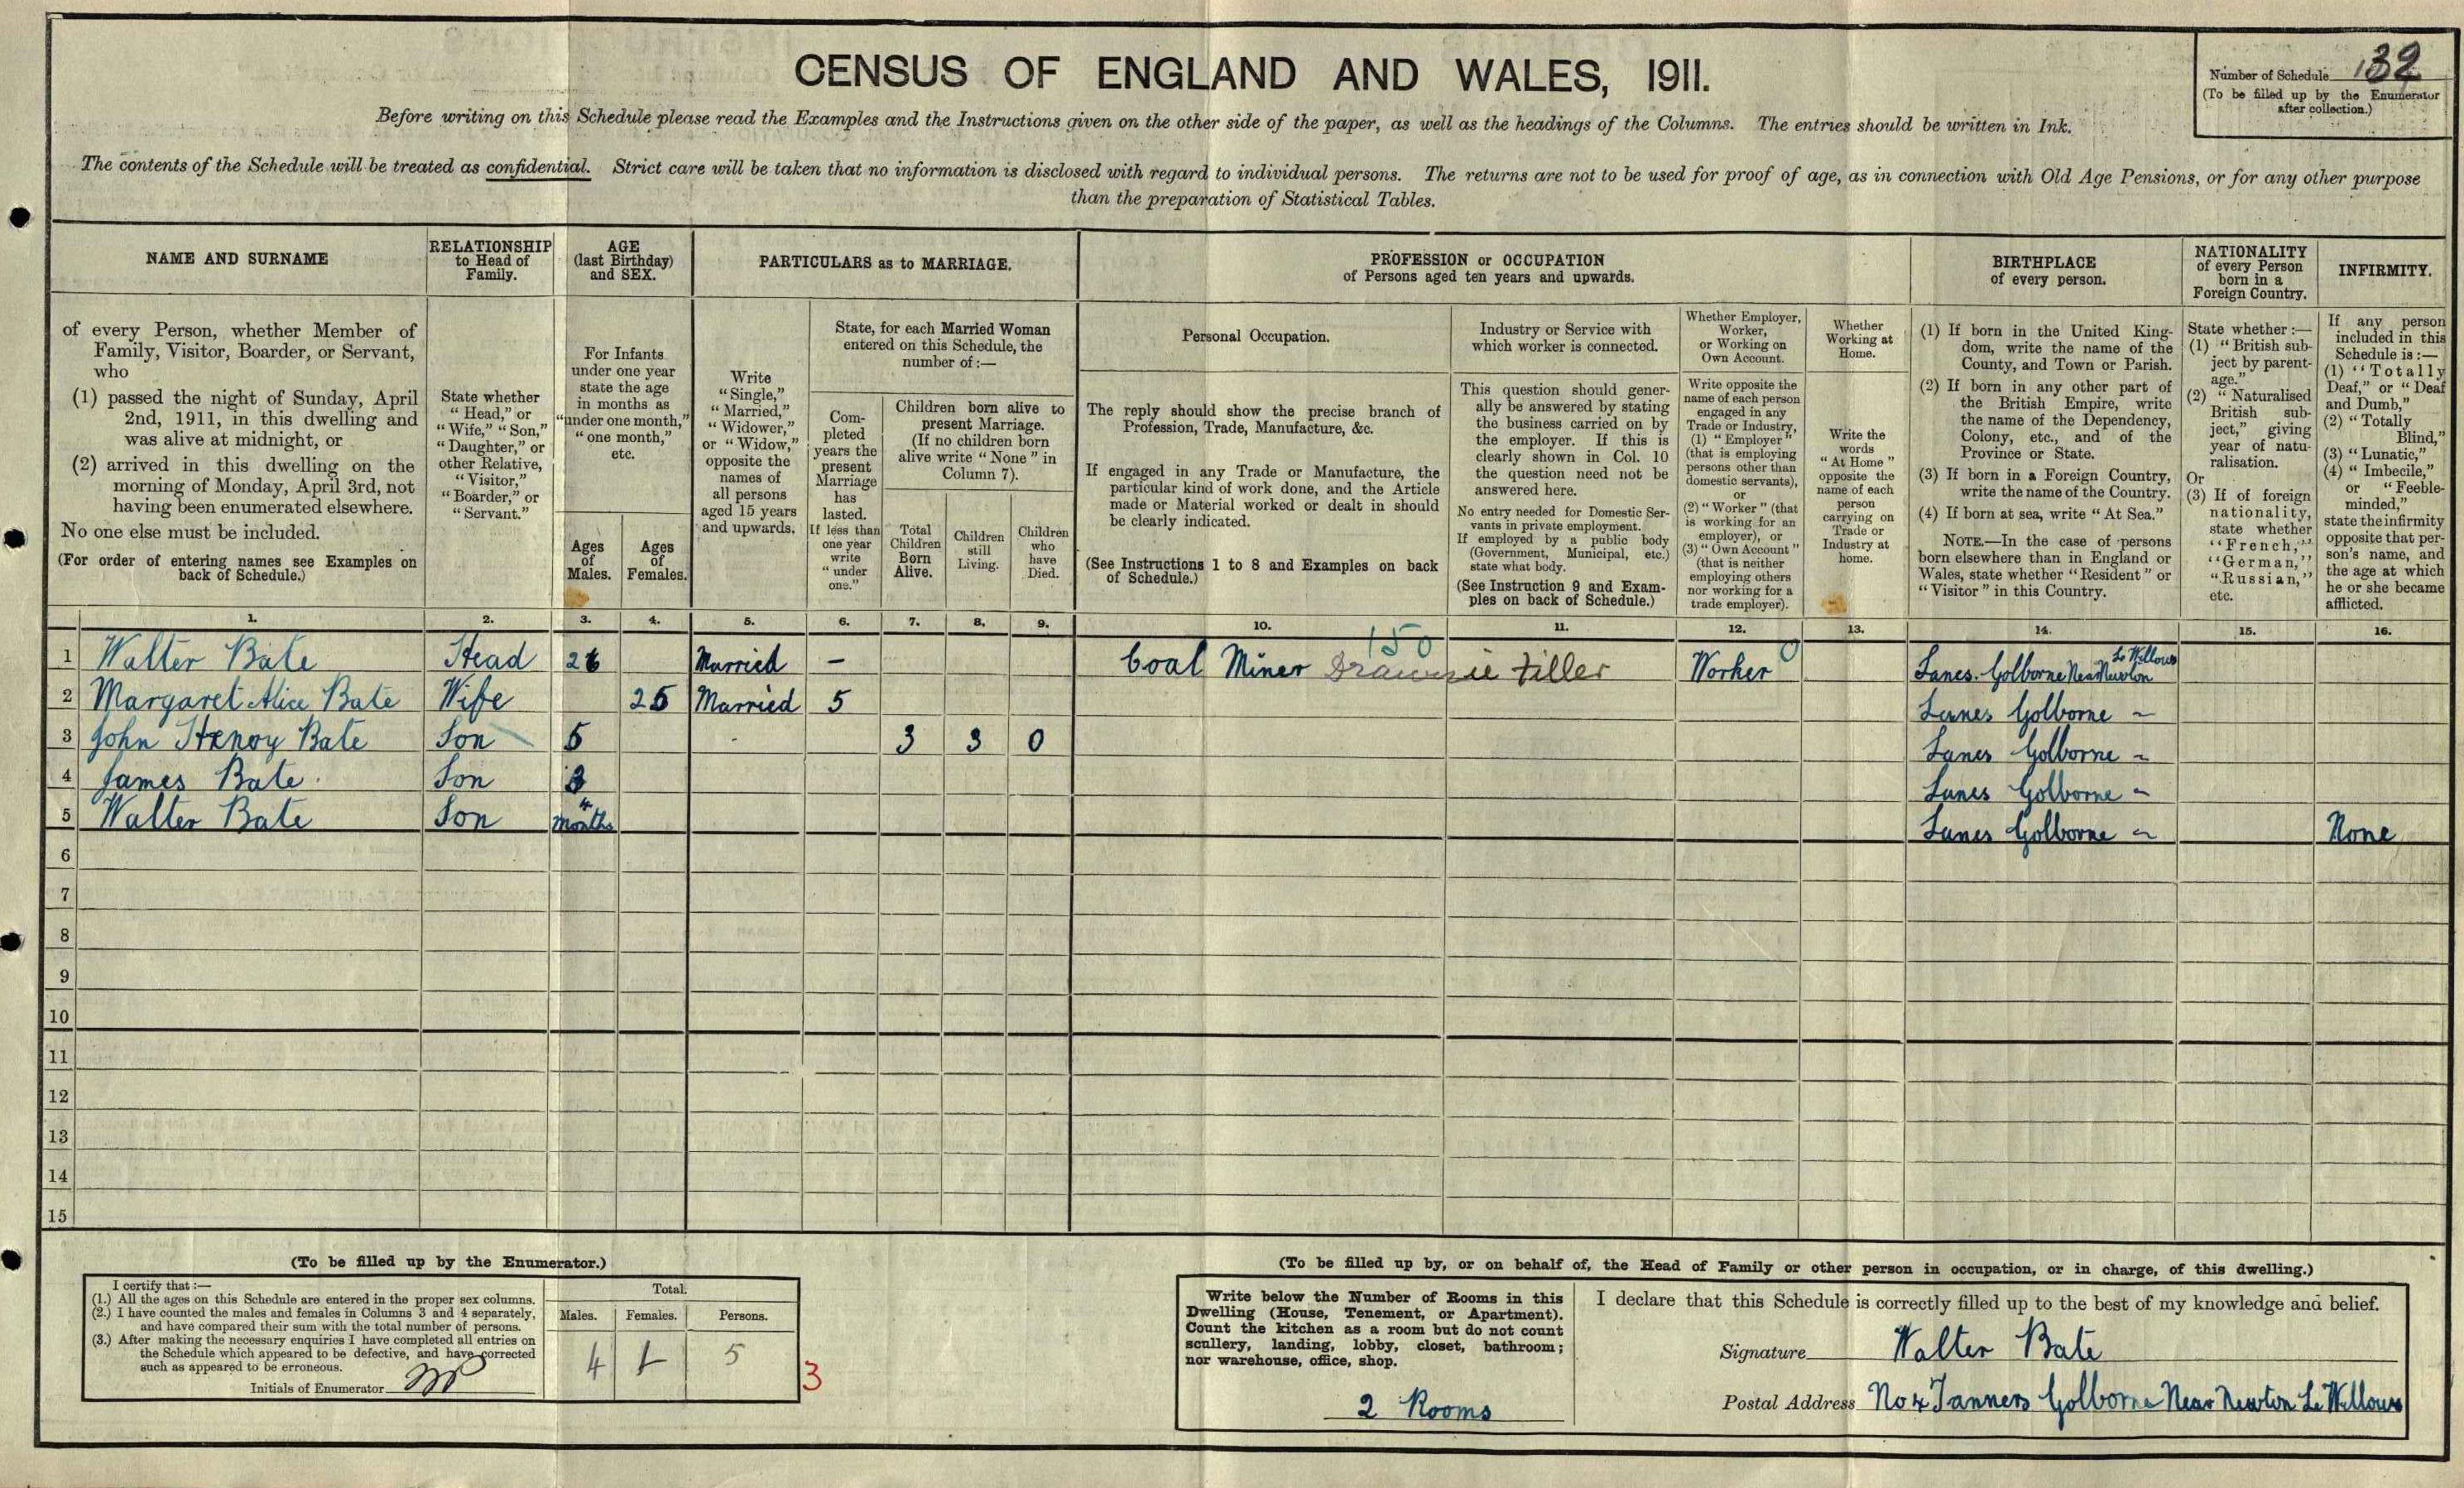 CENSUS OF ENGLAND AND WALES, 1911.
Number of Schedule 132
(To be filled up by the Enumerator
after collection.)
Before writing on this Schedule please read the Examples and the Instructions given on the other side of the paper, as well as the headings of the Columns. The entries should be written in Ink.
The contents of the Schedule will be treated as confidential. Strict care will be taken that no information is disclosed with regard to individual persons. The returns are not to be used for proof of age, as in connection with Old Age Pensions, or for any other purpose
than the preparation of Statistical Tables.
NAME AND SURNAME
of every Person, whether Member of
Family, Visitor, Boarder, or Servant,
who
(1) passed the night of Sunday, April
2nd, 1911, in this dwelling and
was alive at midnight, or
(2) arrived in this dwelling on the
morning of Monday, April 3rd, not
having been enumerated elsewhere.
No one else must be included.
(For order of entering names see Examples on
back of Schedule.)
RELATIONSHIP
to Head of
Family.
State whether
"Head," or
"Wife," "Son,"
"Daughter," or
other Relative,
"Visitor,"
"Boarder," or
"Servant."
AGE
(last Birthday)
and SEX.
For Infants
under one year
state the age
in months as
"under one month,"
"one month,"
etc.
Ages
of
Males.
Ages
of
Females.
PARTICULARS as to MARRIAGE.
Write
"Single,"
"Married,"
"Widower,"
or "Widow,"
opposite the
names of
all persons
aged 15 years
and upwards.
State, for each Married Woman
entered on this Schedule, the
number of :—
Com-
pleted
years the
present
Marriage
has
lasted.
If less than
one year
write
"under
one."
Children born alive to
present Marriage.
(If no children born
alive write "None" in
Column 7).
Total
Children
Born
Alive.
Children
still
Living.
Children
who
have
Died.
PROFESSION or OCCUPATION
of Persons aged ten years and upwards.
Personal Occupation.
The reply should show the precise branch of
Profession, Trade, Manufacture, &c.
If engaged in any Trade or Manufacture, the
particular kind of work done, and the Article
made or Material worked or dealt in should
be clearly indicated.
(See Instructions 1 to 8 and Examples on back
of Schedule.)
Industry or Service with
which worker is connected.
This question should gener-
ally be answered by stating
the business carried on by
the employer. If this is
clearly shown in Col. 10
the question need not be
answered here.
No entry needed for Domestic Ser-
vants in private employment.
If employed by a public body
(Government, Municipal, etc.)
state what body.
(See Instruction 9 and Exam-
ples on back of Schedule.)
Whether Employer,
Worker,
or Working on
Own Account.
Write opposite the
name of each person
engaged in any
Trade or Industry,
(1) "Employer"
(that is employing
persons other than
domestic servants),
or
(2) "Worker" (that
is working for an
employer), or
(3) "Own Account"
(that is neither
employing others
nor working for a
trade employer).
Whether
Working at
Home.
Write the
words
"At Home"
opposite the
name of each
person
carrying on
Trade or
Industry at
home.
BIRTHPLACE
of every person.
(1) If born in the United King-
dom, write the name of the
County, and Town or Parish.
(2) If born in any other part of
the British Empire, write
the name of the Dependency,
Colony, etc., and of the
Province or State.
(3) If born in a Foreign Country,
write the name of the Country.
(4) If born at sea, write "At Sea."
NOTE.—In the case of persons
born elsewhere than in England or
Wales, state whether "Resident" or
"Visitor" in this Country.
NATIONALITY
of every Person
born in a
Foreign Country.
State whether :—
(1) "British sub-
ject by parent-
age."
(2) "Naturalised
British sub-
ject," giving
year of natu-
ralisation.
Or
(3) If of foreign
nationality,
state whether
"French,"
"German,"
"Russian,"
etc.
INFIRMITY.
If any person
included in this
Schedule is :—
(1) "Totally
Deaf," or "Deaf
and Dumb,"
(2) "Totally
Blind,"
(3) "Lunatic,"
(4) "Imbecile,"
or "Feeble-
minded,"
state the infirmity
opposite that per-
son's name, and
the age at which
he or she became
afflicted.
1. 2. 3. 4. 5. 6. 7. 8. 9. 10. 11. 12. 13. 14. 15. 16.
150 0
1 Walter Bate Head 26 Married – Coal Miner filler Worker Lancs. Golborne Near Newton Le Willows
2 Margaret Alice Bate Wife 25 Married 5 Lancs Golborne
3 John Henoy Bate Son 5 3 3 0 Lancs Golborne
4 James Bate Son 3 Lancs Golborne
5 Walter Bate Son 4 months Lancs Golborne None
6
7
8
9
10
11
12
13
14
15
(To be filled up by the Enumerator.)
I certify that :—
(1.) All the ages on this Schedule are entered in the proper sex columns.
(2.) I have counted the males and females in Columns 3 and 4 separately,
and have compared their sum with the total number of persons.
(3.) After making the necessary enquiries I have completed all entries on
the Schedule which appeared to be defective, and have corrected
such as appeared to be erroneous.
Initials of Enumerator
Total.
Males. Females. Persons.
4 1 5
3
(To be filled up by, or on behalf of, the Head of Family or other person in occupation, or in charge, of this dwelling.)
Write below the Number of Rooms in this
Dwelling (House, Tenement, or Apartment).
Count the kitchen as a room but do not count
scullery, landing, lobby, closet, bathroom;
nor warehouse, office, shop.
2 Rooms
I declare that this Schedule is correctly filled up to the best of my knowledge and belief.
Signature Walter Bate
Postal Address No 4 Tanners Golborne Near Newton Le Willows